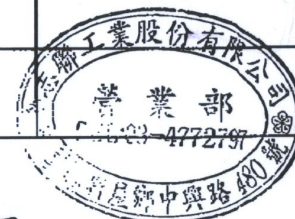 聯工業股份有限公司
營業部
03-4772797
屋鄉中興路480號